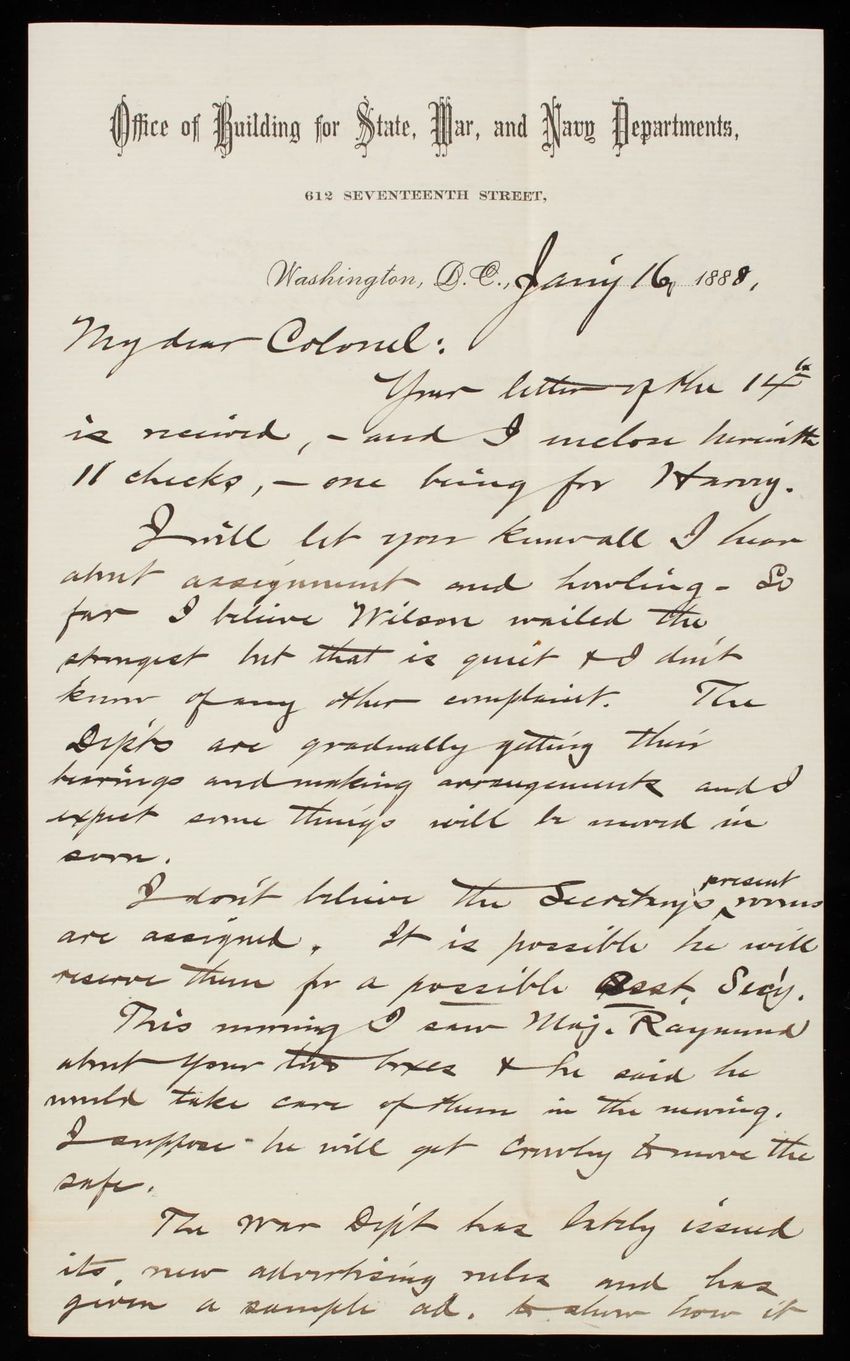 Office of Building for State, War, and Navy Departments,
612 SEVENTEENTH STREET,
Washington, D.C., Jan'y 16, 1888.
My dear Colonel:
Your letter of the 14th
is received, - and I inclose herewith
11 checks, - one being for Harvey.
I will let you know all I hear
about assignment and howling - So
far I believe Wilson wailed the
strongest but that is quiet & I don't
know of any other complaint. The
Dep'ts are gradually getting their
bearings and making arrangements and I
expect some things will be moved in
soon.
I don't believe the Secretary's present rooms
are assigned. It is possible he will
reserve them for a possible Asst. Sec'y.
This morning I saw Maj. Raymond
about your two boxes & he said he
would take care of them in the moving.
I suppose he will get Crowley to move the
safe.
The War Dep't has lately issued
its new advertising rules and has
given a sample ad. to show how it